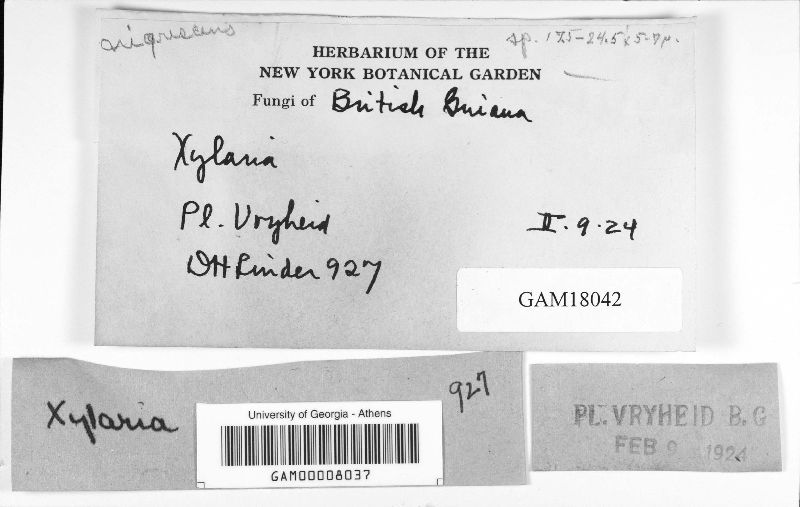 nigrescens
sp. 17.5-24.5 x 5-7µ.
HERBARIUM OF THE
NEW YORK BOTANICAL GARDEN
Fungi of British Guiana
Xylaria
Pl. Vryheid
II. 9. 24
DH Linder 927
GAM18042
Xylaria
927
University of Georgia - Athens
GAM00008037
PL. VRYHEID B. G
FEB 9 1924